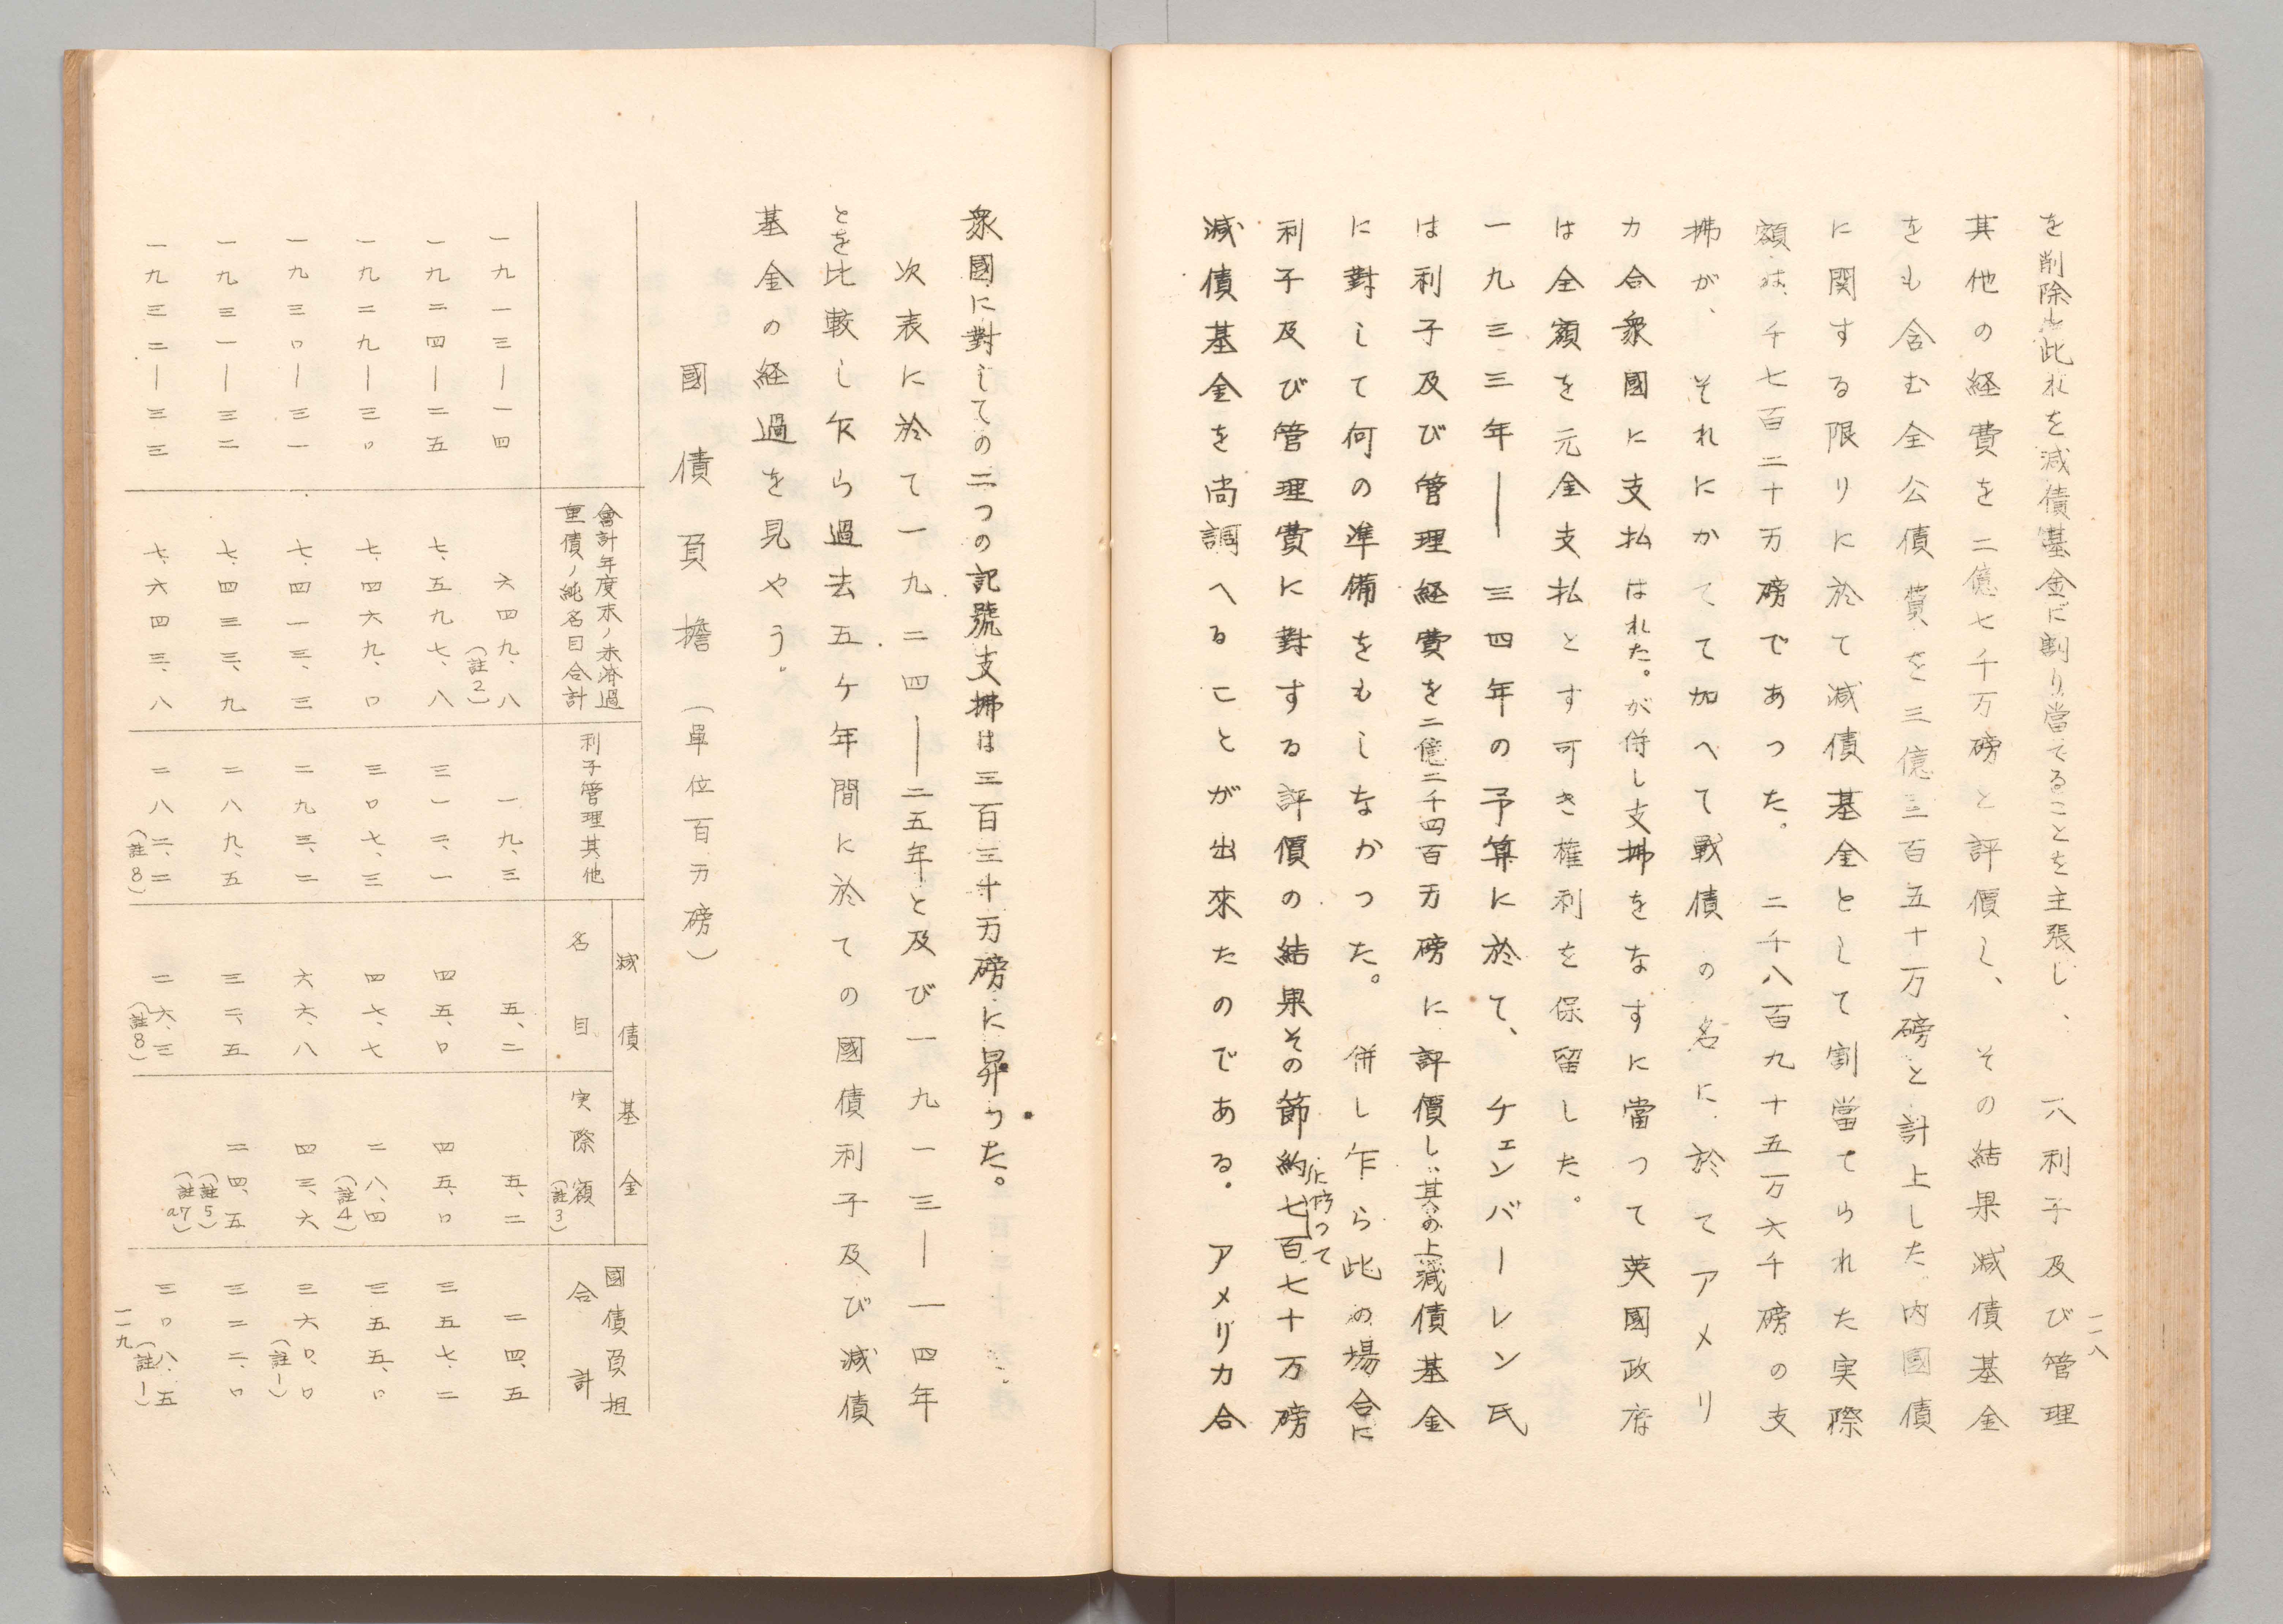 一一八
を削除し此れを減債基金に割り當てることを主張し、八利子及び管理
其他の経費を二億七千万磅と評價し、その結果減債基金
をも含む全公債費を三億三百五十万磅と計上した。内國債
に関する限りに於て減債基金として割當てられた実際
額は、千七百二十万磅であつた。二千八百九十五万六千磅の支
拂が、それにかてて加へて戰債の名に於てアメリ
カ合衆國に支払はれた。が併し支拂をなすに當つて英國政府
は全額を元金支払とす可き権利を保留した。
一九三三年—三四年の予算に於て、チェンバーレン氏
は利子及び管理経費を二億二千四百万磅に評價し、其の上減債基金
に對して何の準備をもしなかつた。併し乍ら此の場合に
利子及び管理費に對する評價の結果その節約七百七十万磅
に依つて
減債基金を尚調へることが出來たのである。アメリカ合
衆國に對しての二つの記號支拂は三百三十万磅に昇つた。
次表に於て一九二四—二五年と及び一九一三—一四年
とを比較し乍ら過去五ケ年間に於ての國債利子及び減債
基金の経過を見やう。
國債負擔（單位百万磅）
會計年度末ノ未済過
重債ノ純名目合計
利子管理其他
減債基金
名目
実際額（註3）
國債負担
合計
一九一三—一四 六四九、八（註2） 一九、三 五、二 五、二 二四、五
一九二四—二五 七、五九七、八 三一二、一 四五、〇 四五、〇 三五七、二
一九二九—三〇 七、四六九、〇 三〇七、三 四七、七 二八、四（註4） 三五五、〇
一九三〇—三一 七、四一三、三 二九三、二 六六、八 四三、六 三六〇、〇（註1）
一九三一—三二 七、四三三、九 二八九、五 三二、五 二四、五（註5） 三二二、〇
一九三二—三三 七、六四三、八 二八二、二（註8） 二六、三（註8） （註a7） 三〇八、五（註1）
一一九